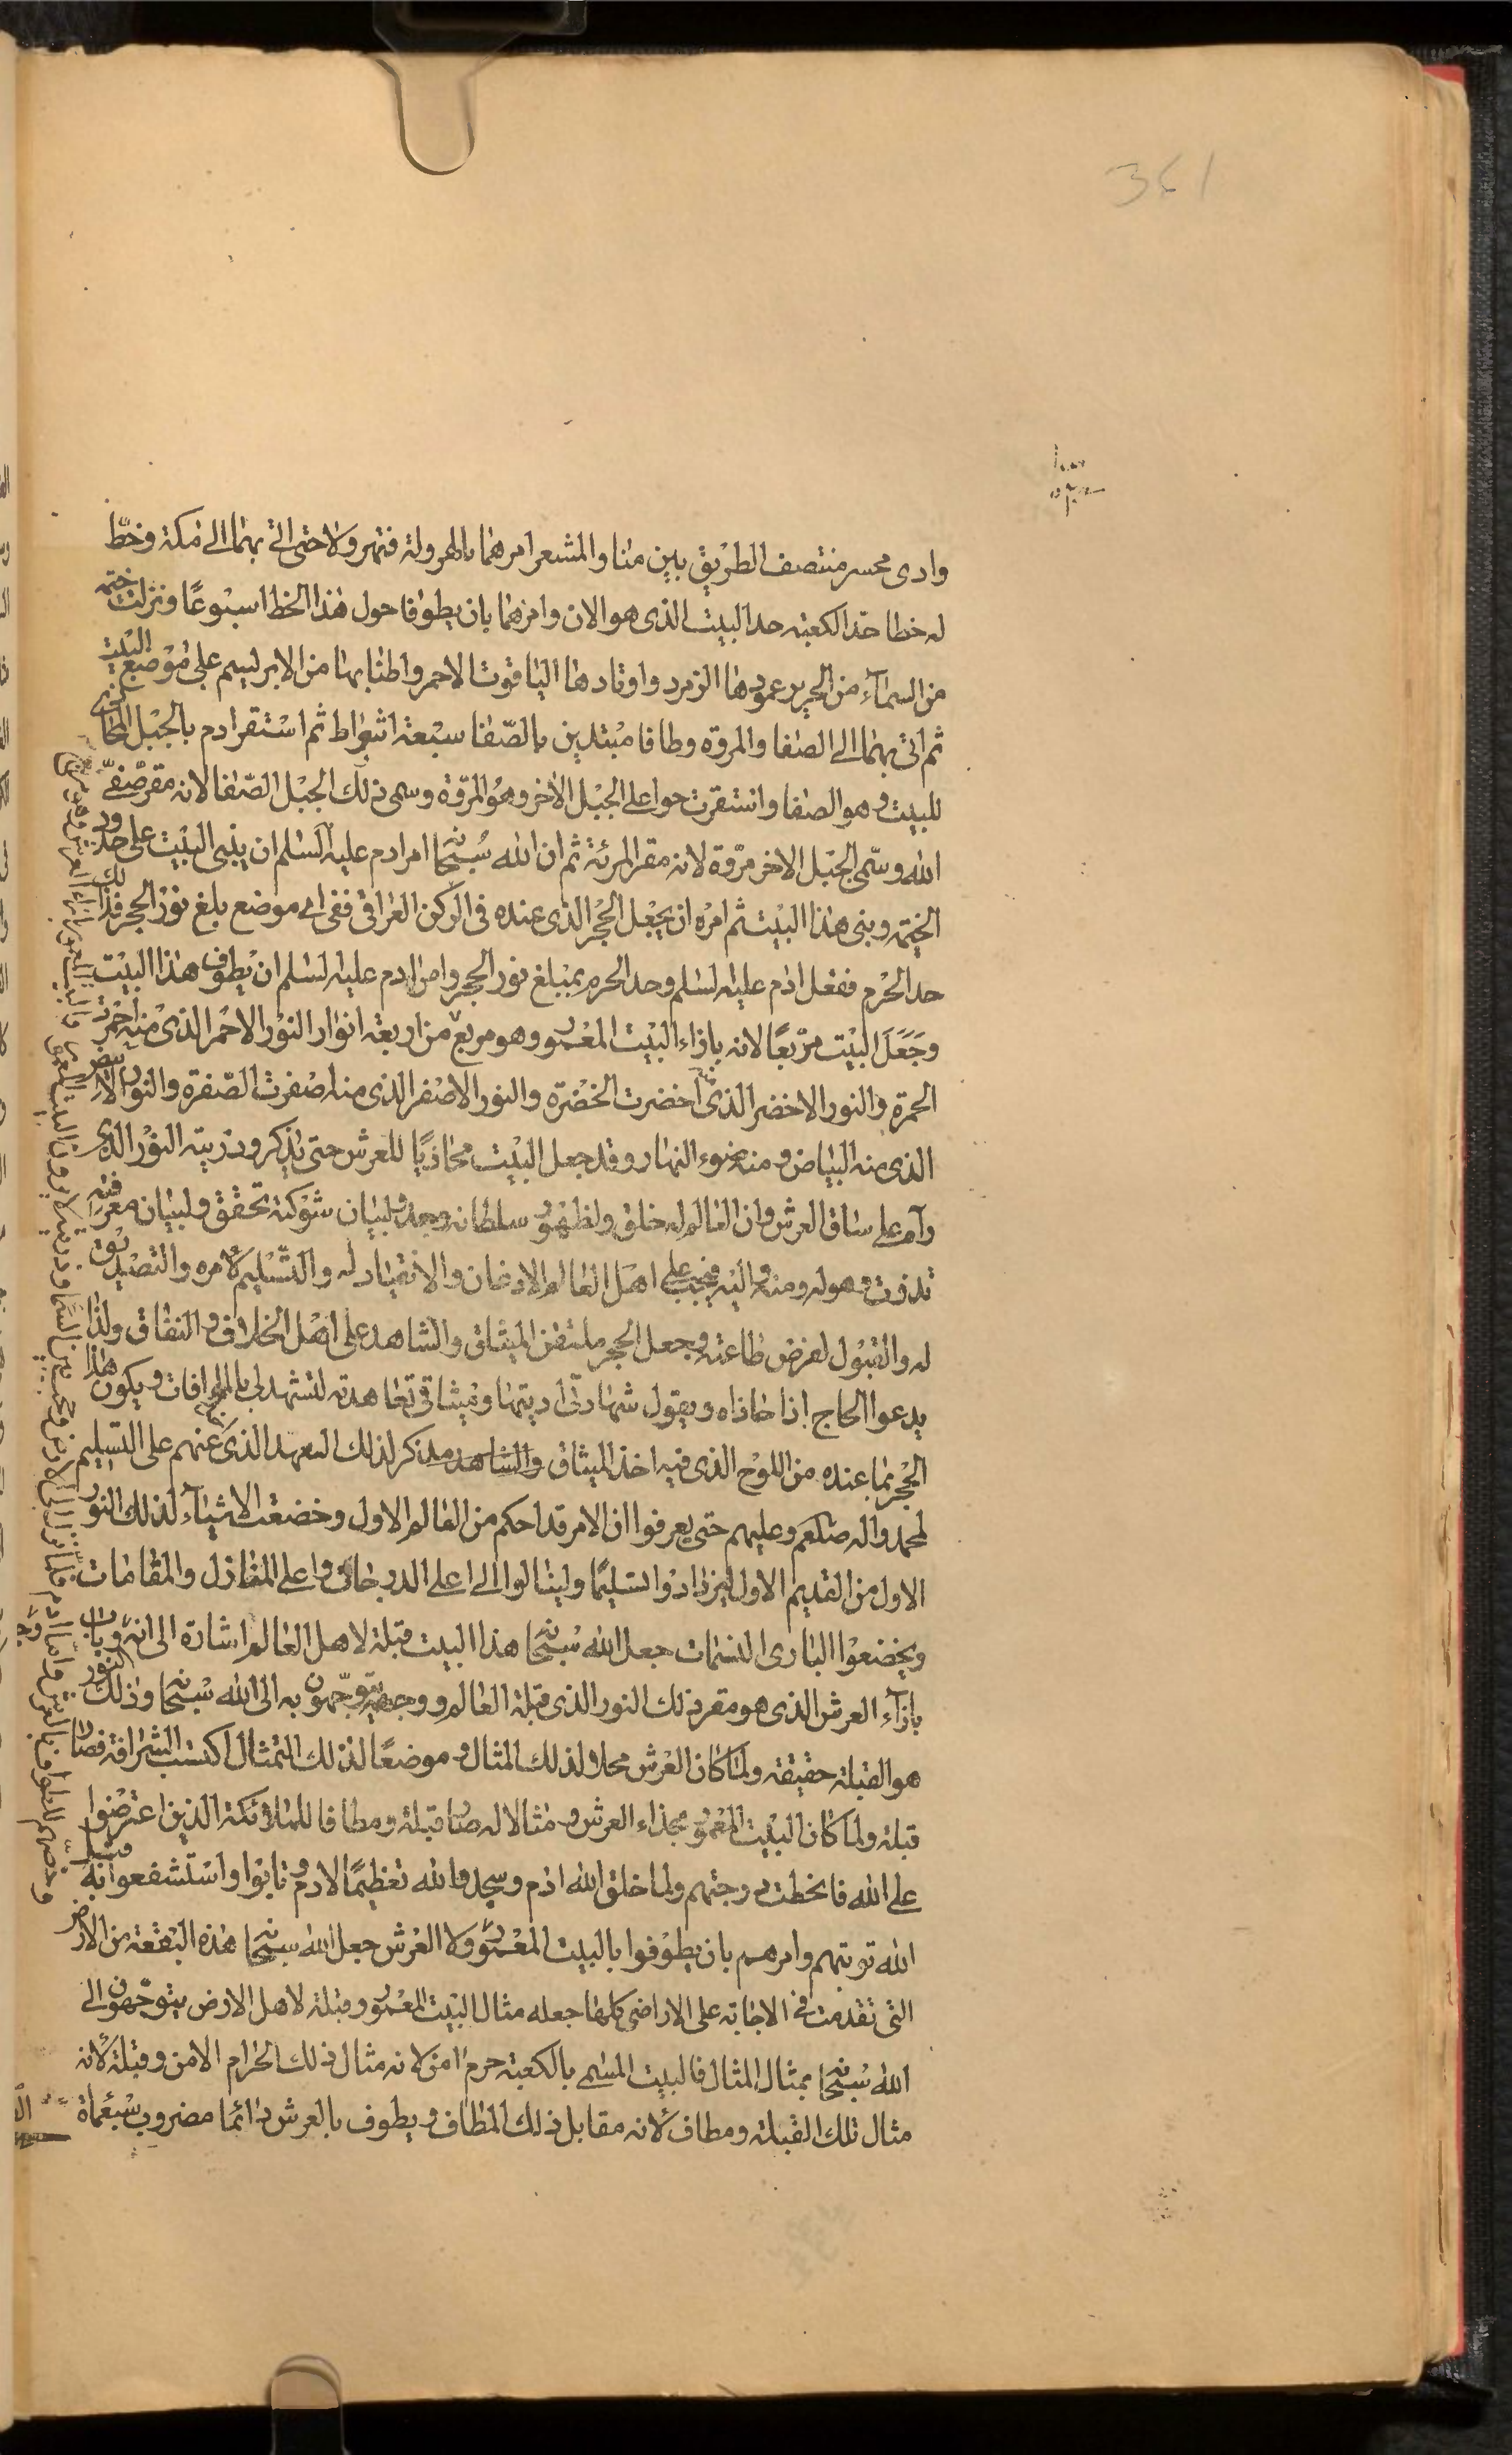 361
وادى محسر منتصف الطريق بين منا والمشعر امرهما بالهرولة فتهرولا حتى اتى بهما الى مكة وخطّ
له خطا حذ الكعبة حد البيت الذى هو الان وامرهما بان يطوفا حول هذا الخط اسبوعًا ونزلت خيمة
من السمآء من الحرير عمودها الزمرد واوتادها الياقوت الاحمر واطنابها من الابريسم على موضع البيت
ثم اتى بهما الى الصفا والمروة وطافا مبتدين بالصّفا سبعة اشواط ثم استقر ادم بالجبل المحاذى
للبيت وهو الصفا واستقرت حوا على الجبل الاخر وهو المرّوة وسمى ذلك الجبل الصّفا لانه مقر صفىّ
الله وسمّى الجبل الاخر مرّوة لانه مقر المرئة ثم ان الله سبحانه امر ادم عليه السلم ان يبنى البيت على حدود
الخيمة وبنى هذا البيت ثم امره ان يجعل الحجر الذى عنده فى الركن العراقى ففى اى موضع بلغ نور الحجر فذلك
حد الحرم ففعل ادم عليه السلم وحد الحرم بمبلغ نور الحجر وامر ادم عليه السلم ان يطوف هذا البيت
وجَعَلَ البيت مربّعًا لانه بازاء البيت المعمور وهو مربع من اربعة انوار النور الاحمر الذى منه احمرت
الحمرة والنور الاخضر الذى اخضرت الخضرة والنور الاصفر الذى منه اصفرت الصّفرة والنور الابيض
الذى منه البياض ومنه ضوء النهار وقد جعل البيت محاذيًا للعرش حتى يذكر وذريته النور الذى
رآه على ساق العرش وان العالم له خلق ولظهور سلطانه وجد ولبيان شوكته تحقق ولبيان معرفته
تذوّت وهو له ومنه واليه فيجب على اهل العالم الاذعان والانقياد له والتّسليم لامره والتصديق
له والقبول لفرض طاعته وجعل الحجر ملتقن الميثاق والشاهد على اهل الخلاف والنفاق ولذا
يدعوا الحاج اذا حاذاه ويقول شهادتى اديتها وميثاقى تعاهدته لتشهد لى بالموافات ويكون هذا
الحجر بما عنده من اللوح الذى فيه اخذ الميثاق والشاهد مذكر لذلك العهد الذى عنهم على التسليم
لمحمد واله صلعم وعليهم حتى يعرفوا ان الامر قد احكم من العالم الاول وخضعت الاشيآء لذلك النور
الاول من القديم الاول ليزدادوا تسليمًا ولينالوا الى اعلى الدرجات واعلى المنازل والمقامات
ويخضعوا البارى النسمات جعل الله سبحانه هذا البيت قبلة لاهل العالم اشارة الى انه
بازآء العرش الذى هو مقر ذلك النور الذى قبلة العالم ووجهة يتوجّهون به الى الله سبحانه وذلك النور
هو القبلة حقيقة ولما كان العرش محلا ولذلك المثال وموضعًا لذلك التمثال اكتسب الشرافة فصار
قبلة ولما كان البيت المعمور بحذاء العرش ومثالا له صار قبلة ومطافا للملائكة الذين اعترضوا
على الله فانحطت درجتهم ولما خلق الله ادم وسجدوا لله تعظيمًا لادم وتابوا واستشفعوا به قبل
الله توبتهم وامرهم بان يطوفوا بالبيت المعمور ولا العرش جعل الله سبحانه هذه البقعة من الارض
التى تقدمت فى الاجابة على الاراضى كلها جعله مثال البيت المعمور وقبلة لاهل الارض يتوجّهون الى
الله سبحانه بمثال المثال فالبيت المسمى بالكعبة حرم امن لانه مثال ذلك الحرام الامن وقبلة لانه
مثال تلك القبلة ومطاف لانه مقابل ذلك المطاف ويطوف بالعرش دائما مضروب سبعماة